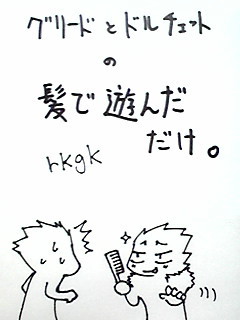 グリードとドルチェット
の
髪で遊んだ
だけ。
rkgk